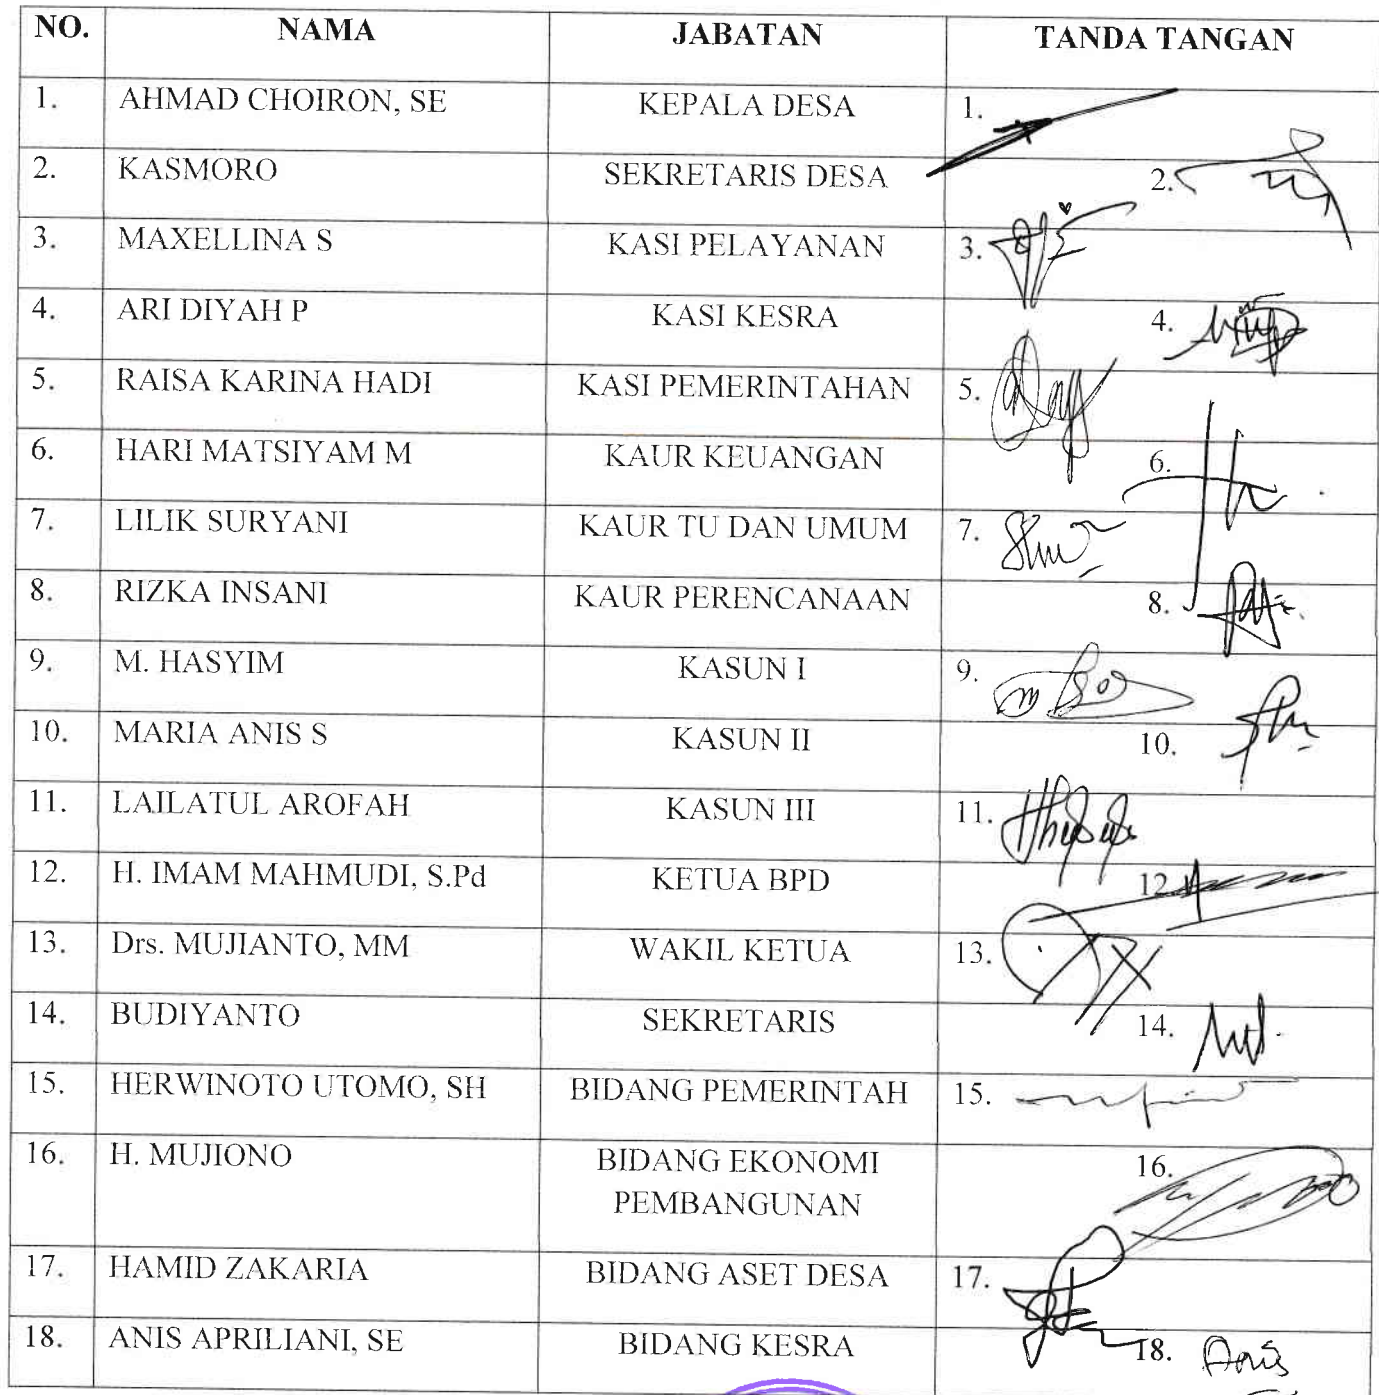 NO. NAMA JABATAN TANDA TANGAN
1. AHMAD CHOIRON, SE KEPALA DESA 1.
2. KASMORO SEKRETARIS DESA 2.
3. MAXELLINA S KASI PELAYANAN 3.
4. ARI DIYAH P KASI KESRA 4.
5. RAISA KARINA HADI KASI PEMERINTAHAN 5.
6. HARI MATSIYAM M KAUR KEUANGAN 6.
7. LILIK SURYANI KAUR TU DAN UMUM 7.
8. RIZKA INSANI KAUR PERENCANAAN 8.
9. M. HASYIM KASUN I 9.
10. MARIA ANIS S KASUN II 10.
11. LAILATUL AROFAH KASUN III 11.
12. H. IMAM MAHMUDI, S.Pd KETUA BPD 12.
13. Drs. MUJIANTO, MM WAKIL KETUA 13.
14. BUDIYANTO SEKRETARIS 14.
15. HERWINOTO UTOMO, SH BIDANG PEMERINTAH 15.
16. H. MUJIONO BIDANG EKONOMI 16.
PEMBANGUNAN
17. HAMID ZAKARIA BIDANG ASET DESA 17.
18. ANIS APRILIANI, SE BIDANG KESRA 18. Anis